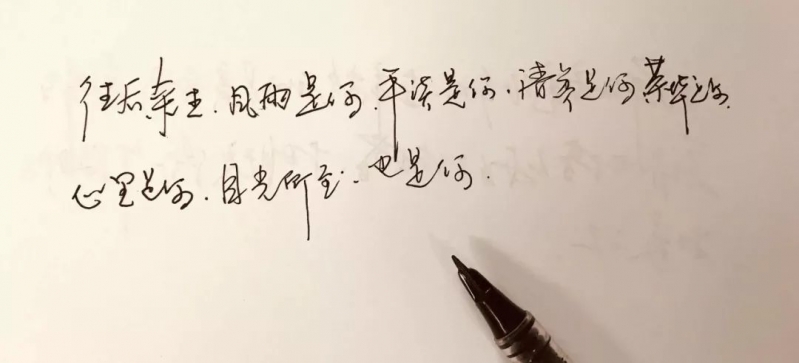 往后余生.风雨是你.平淡是你.清贫是你 荣华是你
心里是你.目光所至.也是你.